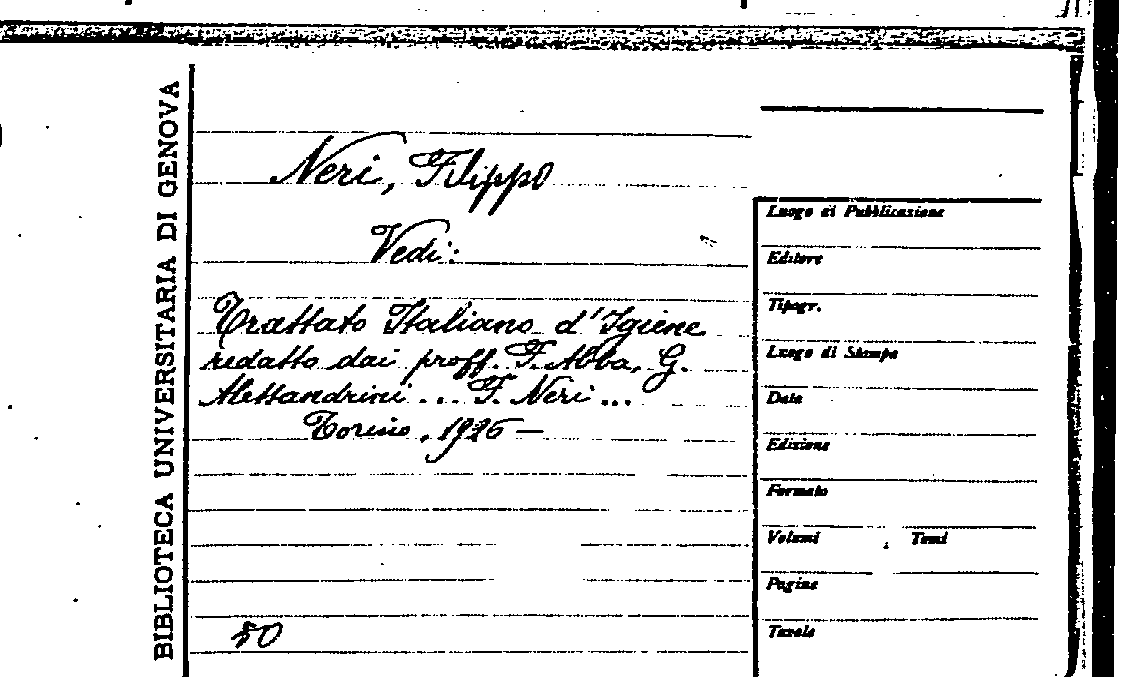 BIBLIOTECA UNIVERSITARIA DI GENOVA
Neri, Filippo
Vedi:
Trattato Italiano d'Igiene
redatto dai proff. F. Abba, G.
Alessandrini ... F. Neri ...
Torino, 1926 —
50
Luogo di Pubblicazione
Editore
Tipogr.
Luogo di Stampa
Data
Edizione
Formato
Volumi , Tomi
Pagine
Tavole